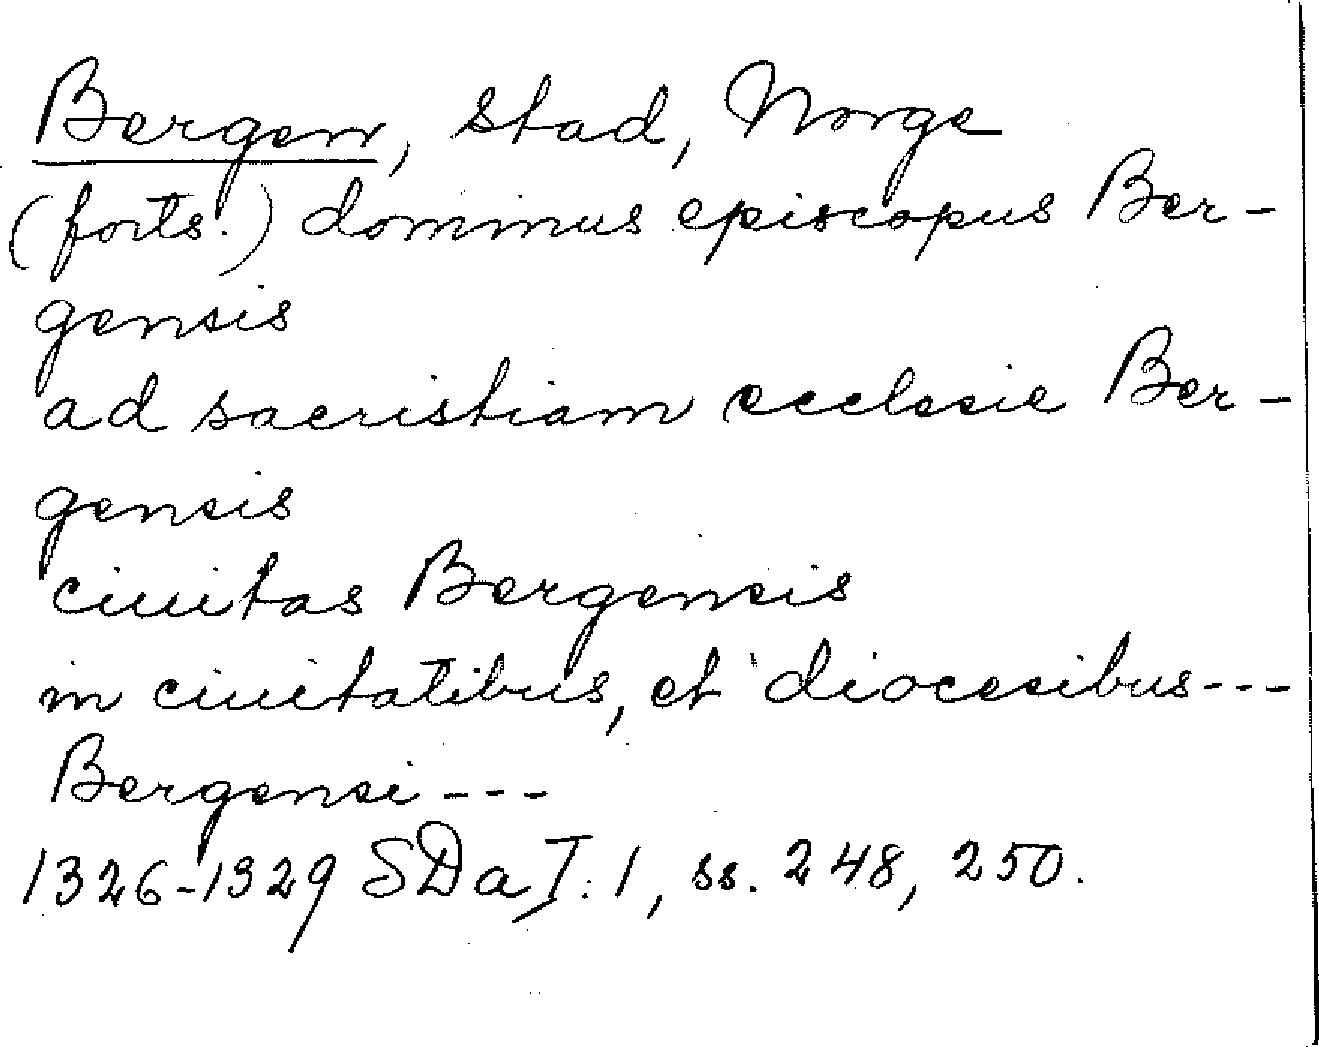 Bergen, stad, Norge
(forts.) dominus episcopus Ber-
gensis
ad sacristiam ecclesie Ber-
gensis
ciuitas Bergensis
in ciuitatibus, et diocesibus---
Bergensi---
1326-1329 SDa I:1, ss. 248, 250.